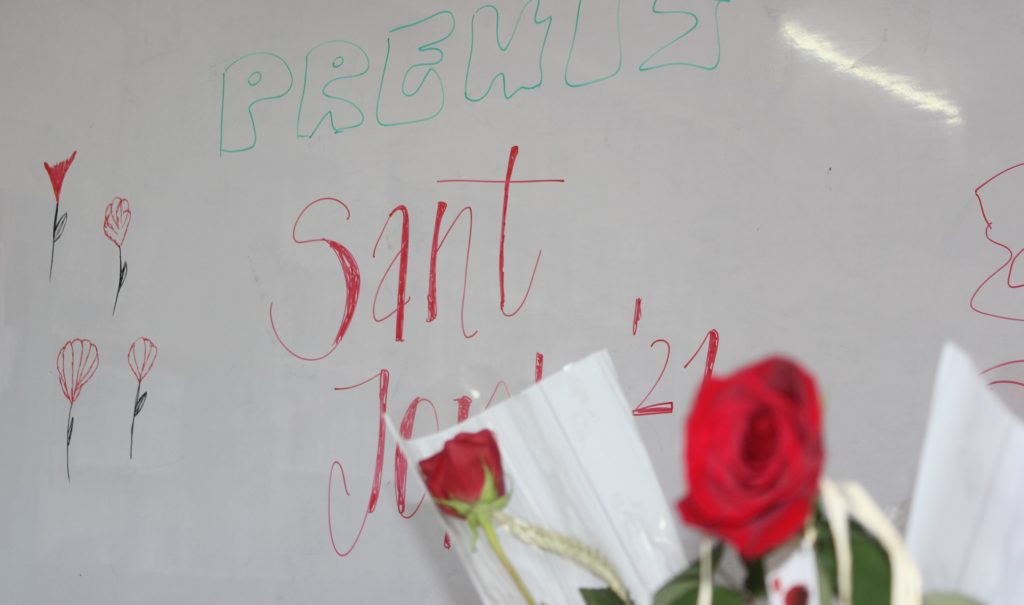 PREMIS
Sant
'21